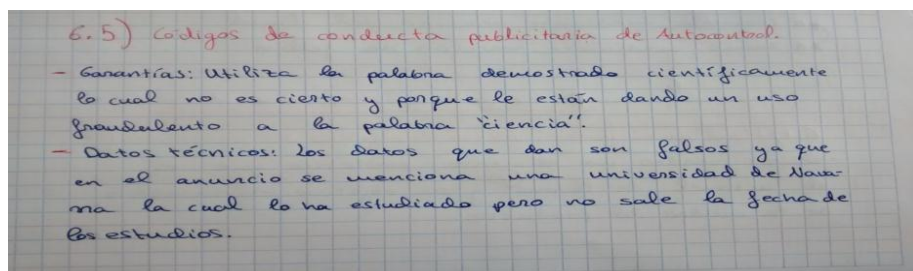 6.5) Códigos de conducta publicitaria de Autocontrol.
- Garantías: Utiliza la palabra demostrado científicamente
lo cual no es cierto y porque le están dando un uso
fraudulento a la palabra "ciencia".
- Datos técnicos: Los datos que dan son falsos ya que
en el anuncio se menciona una universidad de Nava-
rra la cual lo ha estudiado pero no sale la fecha de
los estudios.